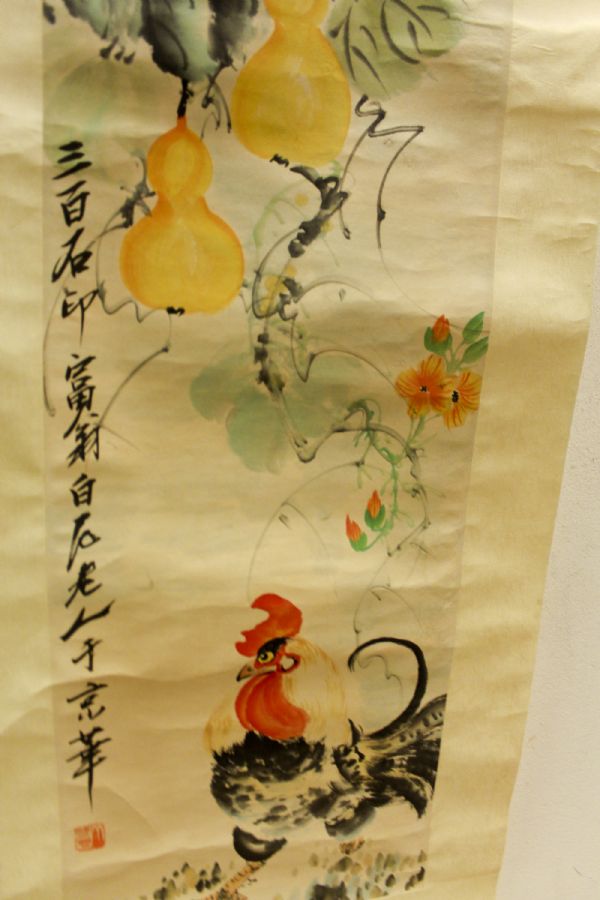 三百石印富翁白石老人于京華